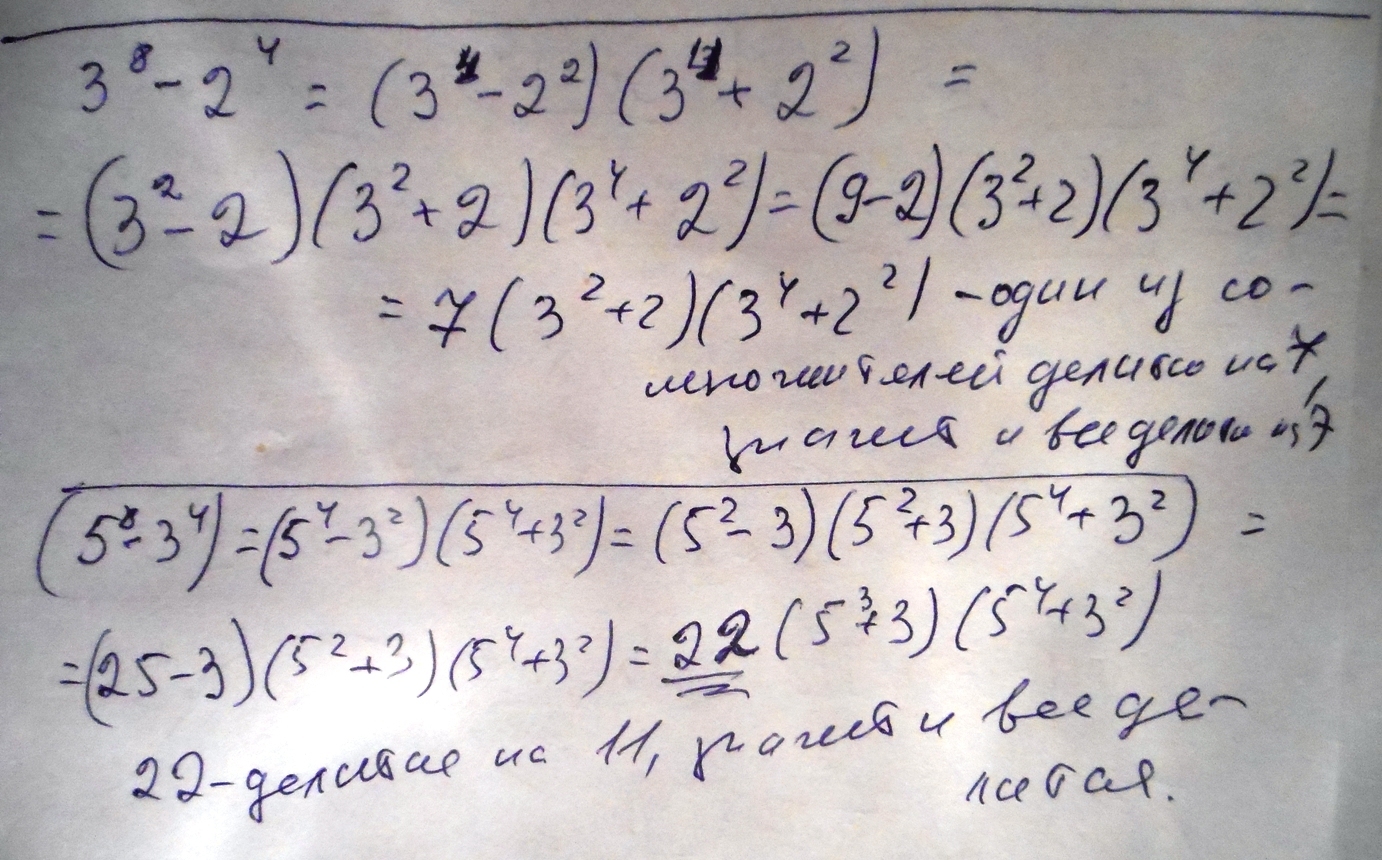 3⁸ - 2⁴ = (3⁴ - 2²)(3⁴ + 2²) =
= (3² - 2)(3² + 2)(3⁴ + 2²) = (9-2)(3²+2)(3⁴+2²) =
= 7(3²+2)(3⁴+2²) - один из со-
множителей делится на 7,
значит и все делится на 7
(5⁸-3⁴) = (5⁴-3²)(5⁴+3²) = (5²-3)(5²+3)(5⁴+3²) =
=(25-3)(5²+3)(5⁴+3²) = 22(5³+3)(5⁴+3²)
22-делится на 11, значит и все де-
лится.